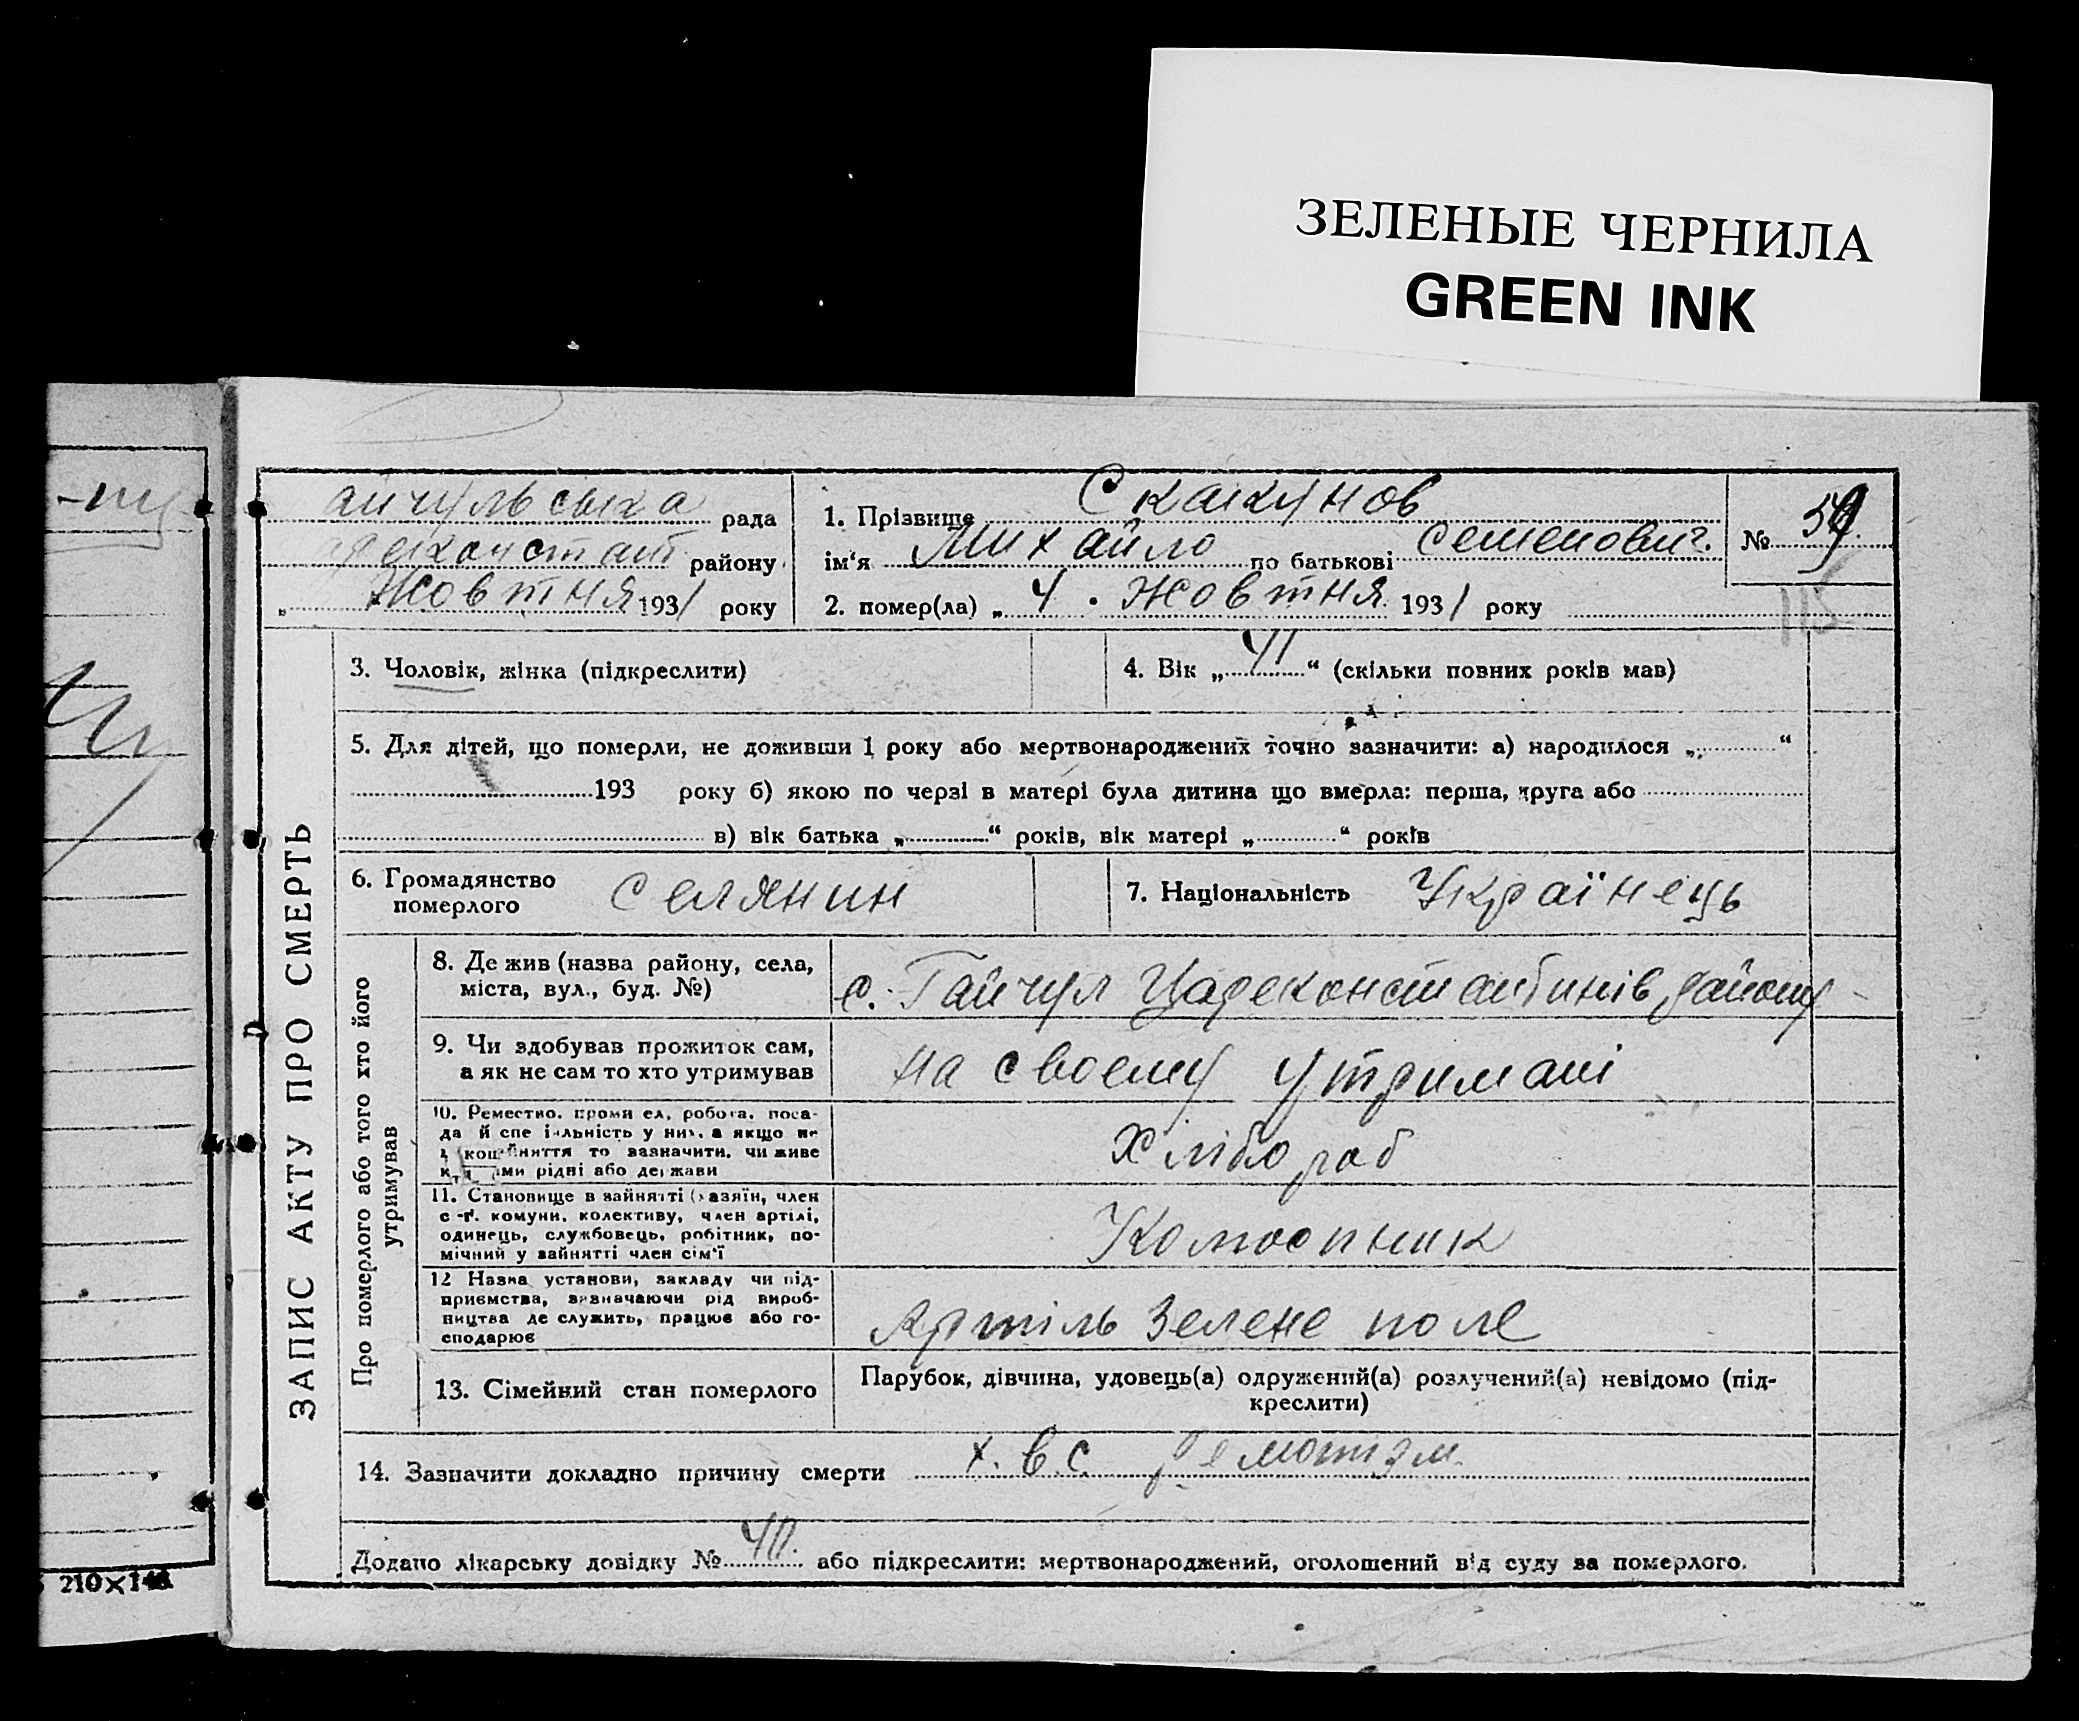 ЗЕЛЕНЫЕ ЧЕРНИЛА
GREEN INK
айчульська рада
арекончтант району
„ Жовтня 1931 року
1. Прізвище Скакунов
ім‘я Михайло по батькові Семенович.
№ 59.
2. помер(ла) „ 4 . Жовтня 1931 року
115
ЗАПИС АКТУ ПРО СМЕРТЬ
3. Чоловік, жінка (підкреслити)
4. Вік „ 41 “ (скільки повних років мав)
5. Для дітей, що померли, не доживши 1 року або мертвонароджених точно зазначити: а) народилося „ “
193 року б) якою по черзі в матері була дитина що вмерла: перша, друга або
в) вік батька „ “ років, вік матері „ “ років
6. Громадянство
померлого
селянин
7. Національність Українець
Про померлого або того хто його
утримував
8. Де жив (назва району, села,
міста, вул., буд. №)
с. Гайчул Цареконстантинів району
9. Чи здобував прожиток сам,
а як не сам то хто утримував
на своему утримані
10. Ремество, проми ел, робота, поса-
да й спе іальність у них, а якщо не
кош
ми рідні або держави
хлібо роб
11. Становище в зайнятті (хазяїн, член
с-г. комуни, колективу, член артілі,
одинець, службовець, робітник, по-
мічний у зайнятті член сім‘ї
Колгоспник
12 Назва установи, закладу чи під-
приємства, визначаючи рід вироб-
ництва де служить, працює або го-
сподарює
Артіль Зелене поле
13. Сімейний стан померлого
Парубок, дівчина, удовець(а) одружений(а) розлучений(а) невідомо (під-
креслити)
14. Зазначити докладно причину смерти х. в. с. ремотизм.
Додано лікарську довідку № 40. або підкреслити: мертвонароджений, оголошений від суду за померлого.
210×148